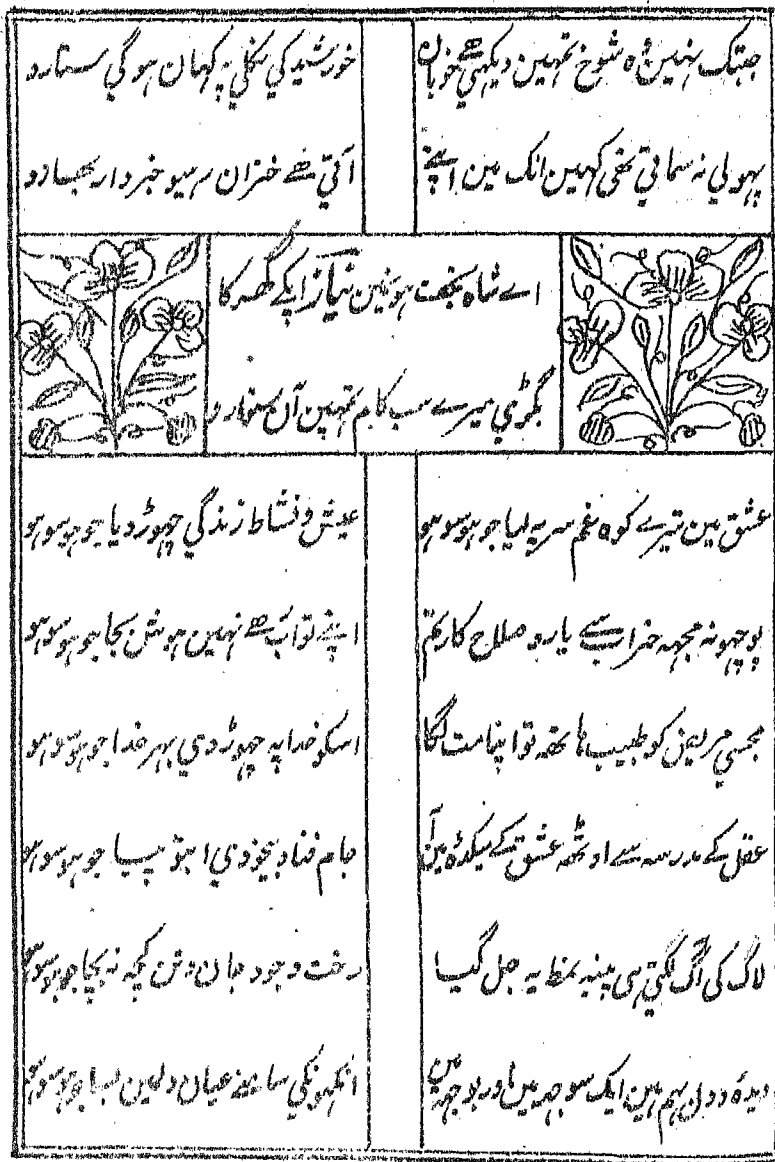 جبتک نہین وہ شوخ تمہین دیکھي ھے خوبان
خورشید کي نکلي پہ کہان ہوگي ستارو
پہولي نہ سماتي تھي کہین انگ مین اپنے
آتي ھے خزان رہیو خبردار بہارو
اے شاہ نجف ہونمین نیاز آپکے گھر کا
بگڑي میرے سب کام تمہین آن سنوارو
عشق مین تیرے کوہ غم سر پہ لیا جو ہو سو ہو
عیش و نشاط زندگي چھوڑ دیا جو ہو سو ہو
پوچھو نہ مجھہ خراب سے یارو صلاح کار تم
اپنے تو اب ھے نہین ہوش بجا جو ہو سو ہو
مجسي مریض کو طبیب ہاتھہ تو اپنا مت لگا
اسکو خدا پہ چھوڑ دي بہر خدا جو ہو سو ہو
عقل کے مدرسہ سے اوٹھہ عشق کے میکدہ مین آ
جام فنا و بیخودي ابتو پیا جو ہو سو ہو
لاگ کی آگ لگتي ہي پنبہ نمط یہ جل گیا
رخت وجود جان و تن کچھ نہ بچا جو ہو سو ہو
دیدۂ و دل بہم ہین ایک سوجھہ مین اور بوجھہ مین
انکھونکي سامنے عیان دلمین بسا جو ہو سو ہو